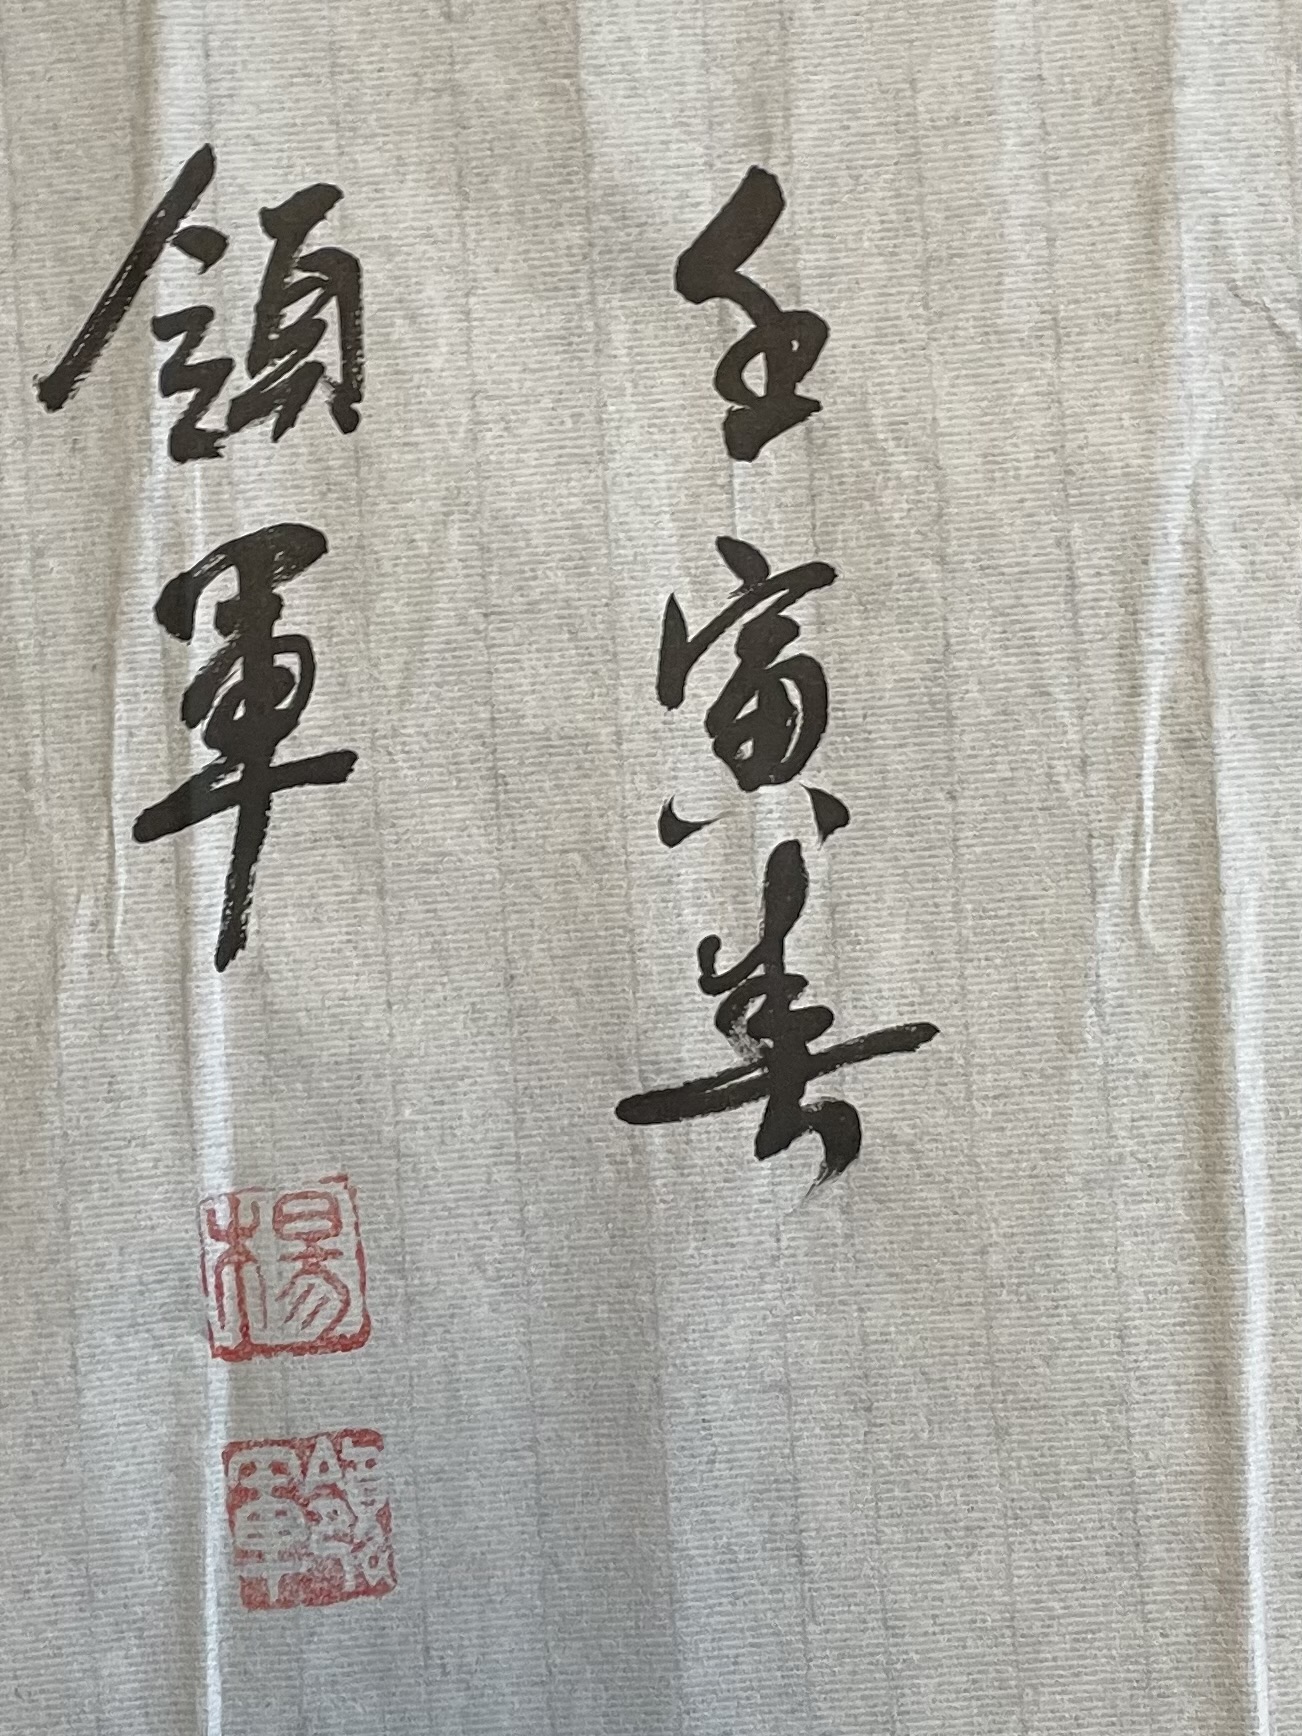 壬寅春
領軍
楊
領軍